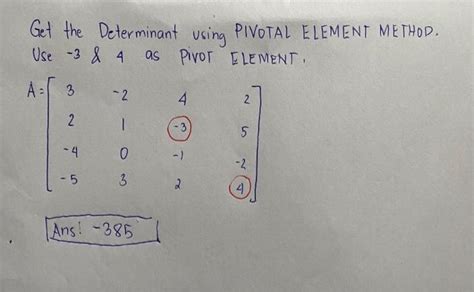 Get the Determinant using PIVOTAL ELEMENT METHOD.
Use -3 & 4 as PIVOT ELEMENT.
A = [ 3 -2 4 2
2 1 -3 5
-4 0 -1 -2
-5 3 2 4 ]
Ans: -385